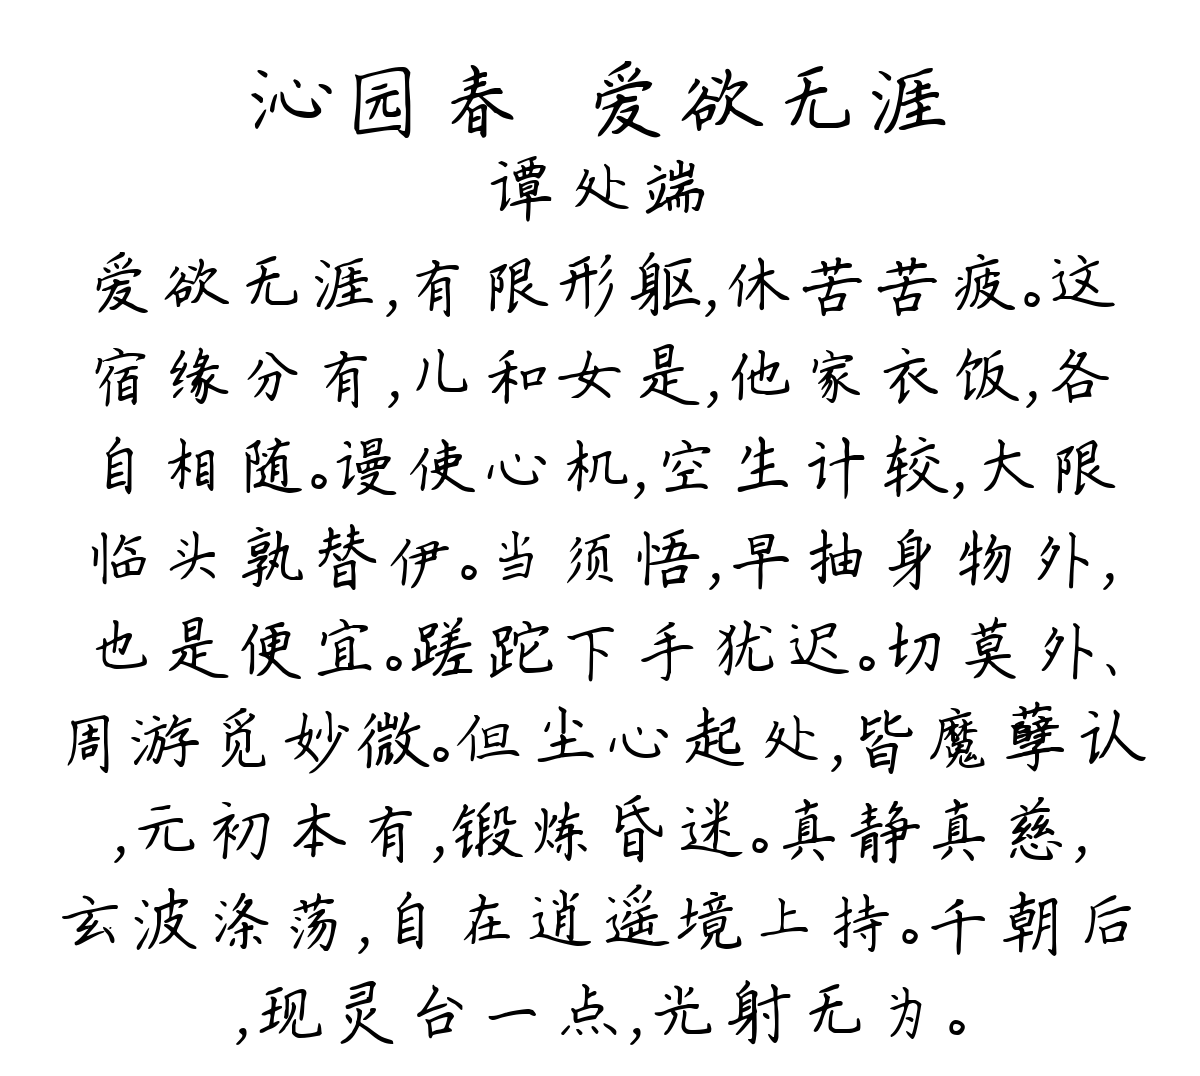 沁园春 爱欲无涯
谭处端
爱欲无涯,有限形躯,休苦苦疲。这
宿缘分有,儿和女是,他家衣饭,各
自相随。谩使心机,空生计较,大限
临头孰替伊。当须悟,早抽身物外,
也是便宜。蹉跎下手犹迟。切莫外、
周游觅妙微。但尘心起处,皆魔孽认
,元初本有,锻炼昏迷。真静真慈,
玄波涤荡,自在逍遥境上持。千朝后
,现灵台一点,光射无为。